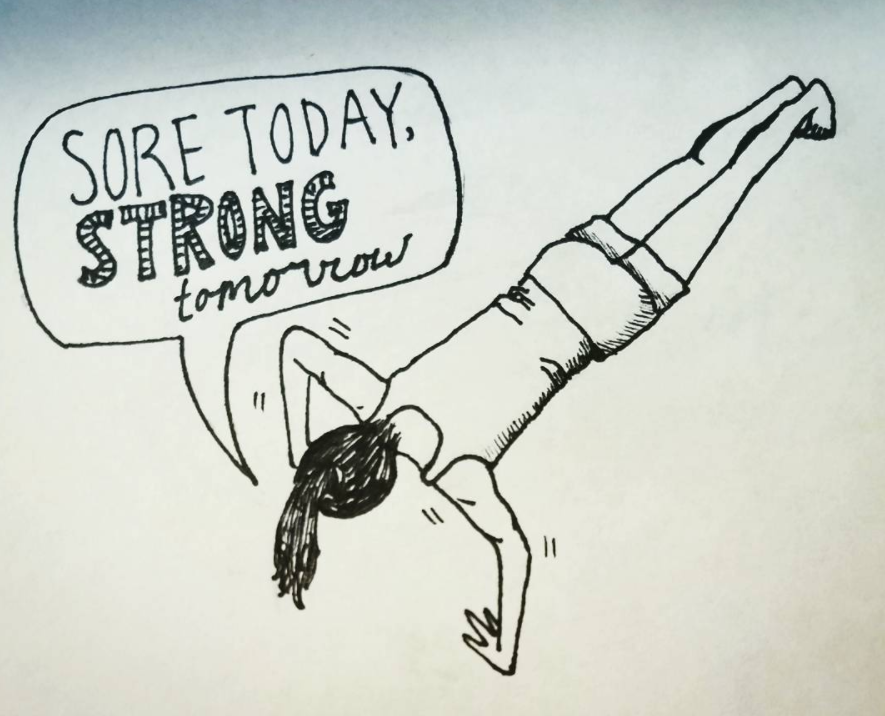 SORE TODAY,
STRONG
tomorrow